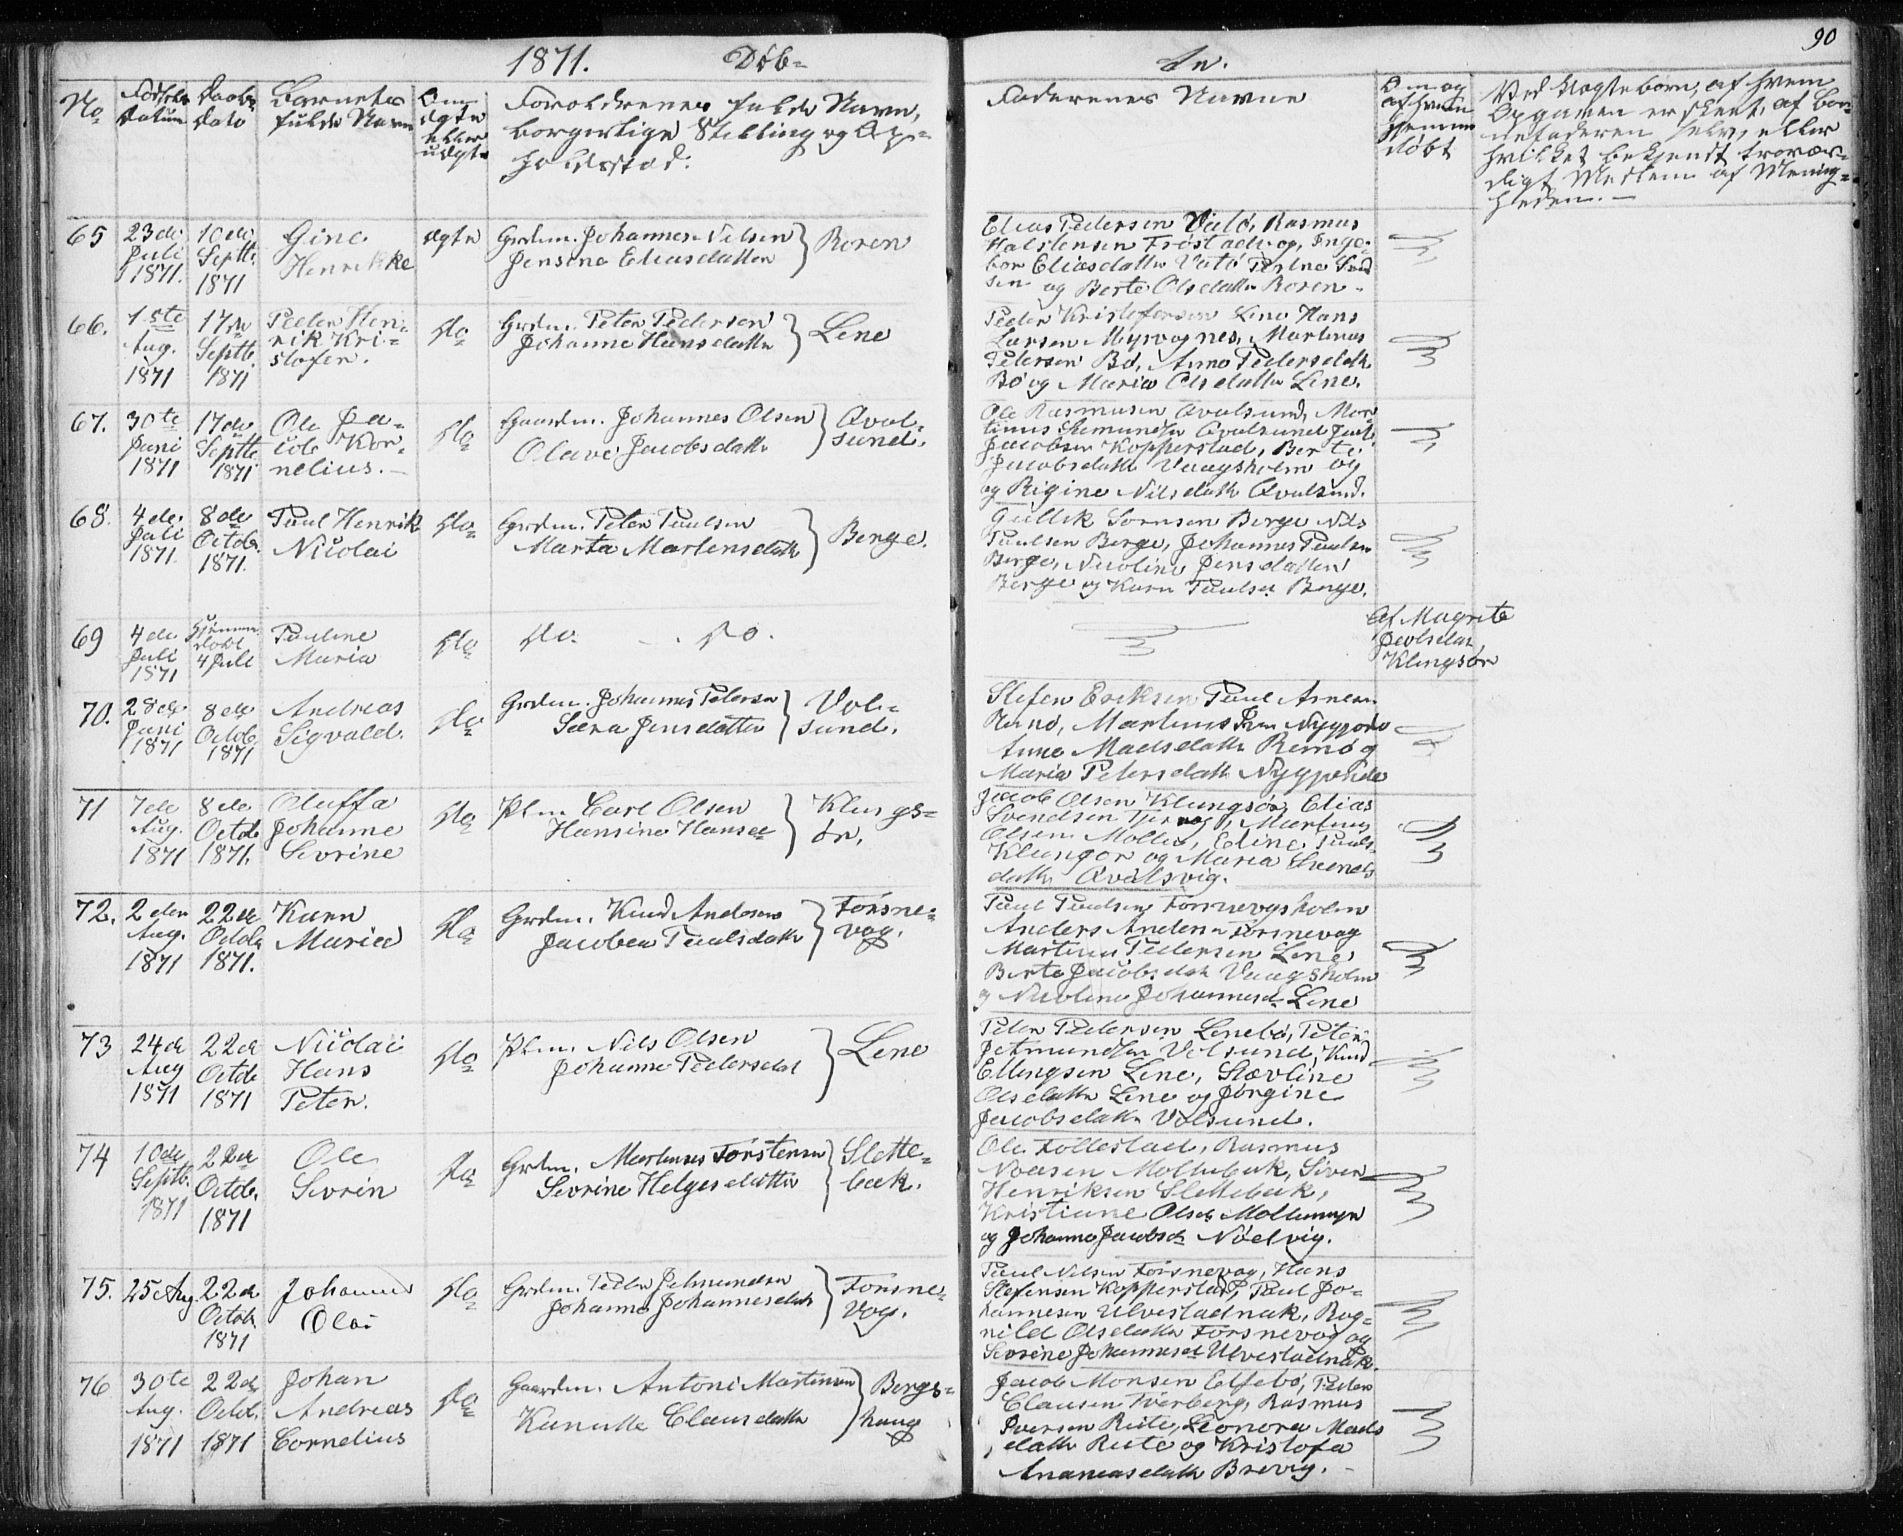 1871. Døb- te. 90
No
Fødsels Datum
Daabs Dato
Barnets fulde Navn
Om ægte eller uægte
Forældrenes fulde Navn, borgerlige Stilling og Op-
holdssted.
Faddernes Navne
Om og af hvem hjemme døbt
Ved uægte børn, af hvem
Opgaven er skeet, af Bar-
nefaderen selv, eller
hvilket bekjendt trovær-
digt Medlem af Menig-
heden.
65 23de Juli 1871. 10de Septb. 1871 Gine Henrikke ægte
Grdm. Johannes Nilsen
Jensine Eliasdatter } Roren
Elias Pedersen Vatö, Rasmus
Halstensen Fröstad og Inge-
bor Eliasdatter Vatö
og Berte Olsdatter Roren
66. 1ste Aug. 1871 17de Septb. 1871 Peder Hen-
rik Kri-
stofer. do
Grdm. Peter Pedersen
Johanne Hansdatter } Lene
Peder Kristofersen Lene Hans
Larsen Myrvognes, Martinus
Petersen Bö, Anne Pedersdatter
Bö og Maria Olsdatter Lene.
67. 30te Juni 1871 17de Septb. 1871 Ole Ja-
cob Kor-
nelius. do
Gaardm. Johannes Olsen
Olave Jacobsdatter } Qval-
sund.
Ole Rasmusen Qvalsund, Mar
tinus Qvalsund
Jacobsen Kopperstad, Berte
Jacobsdatter Vaagsholm og
og Rigine Nilsdatter Qvalsund.
68. 4de Juli 1871. 8de Octob. 1871. Paul Henrik
Nicolai do
Grdm. Peter Paulsen
Marta Martensdatter } Berge
Gullik Sörnsen Berge Nils
Paulsen Berge, Johannes Paulsen
Berge, Nicoline Jensdatter
Berge og Karn Paulsd Berge.
69 4de Juli 1871 Hjemme døbt 4 Juli Pauline
Maria do
do. do.
Af Magrete
Jacobsdat
Klingsör
70. 28de Juni 1871 8de Octob 1871 Andreas
Sigvald. do
Grdm. Johannes Petersen
Særa Jensdatter } Vol-
sund.
Stefen Eriksen Paul Arnesen
Remö, Martinus Nygjerde
Anne Madsdatter Remö og
Maria Petersdatter Nygjerde
71 7de Aug. 1871 8de Octob 1871. Oluffa
Johanne
Sevrine do
Plm. Carl Olsen
Hansine Hansd } Klungs-
ör.
Jacob Olsen Klungsör, Elias
Svendsen Tjervog, Martinus
Olsen Molle, Eline Pauls
Klungör og Maria Svends
datter Qvalsvig.
72. 2den Aug. 1871 22de Octob 1871. Karn
Maria do
Grdm. Knud Andersen
Jacobea Paulsdatter } Försne-
vog.
Paul Paulsen Försnevogsholm
Anders Andersen Försnevog
Martinus Pedersen Lene
Berte Jacobsdat Vaagsholm
og Nicoline Johannesd Lene
73 24de Aug 1871 22de Octob 1871 Nicolai
Hans
Peter. do
Plm. Nils Olsen
Johanne Pedersdat } Lene
Peter Pedersen Lenebö, Peter
Jetmundsen Volsund, Knud
Ellingsen Lene, Stævline
Olsdatter Lene og Jörgine
Jacobsdatter Volsund.
74 10de Septb. 1871 22de Octob. 1871 Ole
Sevrin do
Grdm. Martines Torstensen
Sevrine Helgesdatter } Slette-
bak.
Ole Follestad, Rasmus
Noeasen Mollebak, Siver
Henriksen Slettebak,
Kristiane Olsd Mollemyr
og Johanne Jacobsd Nöelvig.
75. 25 Aug 22de Octob. 1871 Johannes
Olai do
Grdm. Peder Jetmundsen
Johanne Johannesdat } Försne-
vog.
Paul Nilsen Försnevog, Hans
Stefensen Kopperstad, Paul Jo-
hannesen Ulvestadnak, Rag-
nild Olsdatter Försnevog og
Sevrine Johannesd Ulvestadnak.
76 30te Aug. 1871 22de Octob. 1871 Johan
Andreas
Cornelius do
Gaardm. Antoni Martensen
Kanutte Clausdatter } Bergs-
haug
Jacob Monsen Elsebö, Peder
Clausen Tverberg, Rasmus
Iversen Rute, Leonora Mads
datter Rute og Kristofa
Ananeasdatter Brevig.